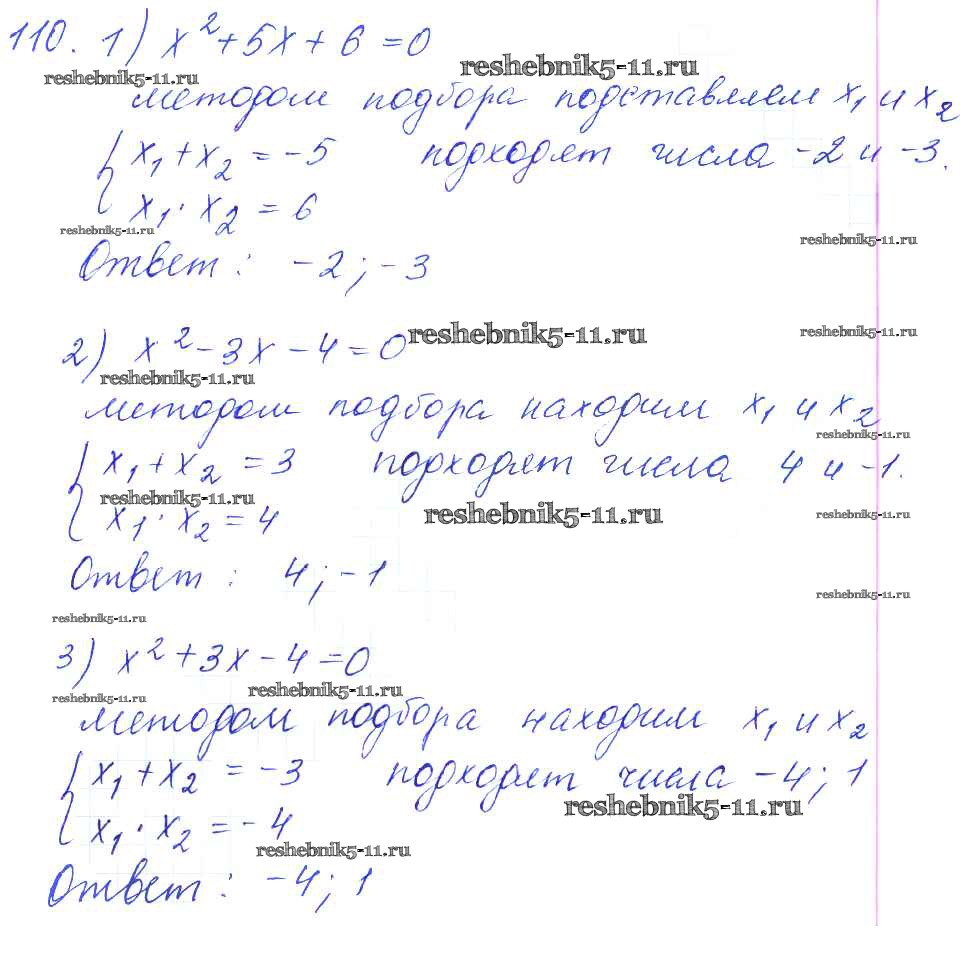 110. 1) x² + 5x + 6 = 0
reshebnik5-11.ru reshebnik5-11.ru
методом подбора подставляем x₁ и x₂
{ x₁ + x₂ = -5 подходят числа -2 и -3.
x₁ · x₂ = 6
reshebnik5-11.ru reshebnik5-11.ru
Ответ: -2; -3
2) x² - 3x - 4 = 0 reshebnik5-11.ru reshebnik5-11.ru
reshebnik5-11.ru
методом подбора находим x₁ и x₂
reshebnik5-11.ru
{ x₁ + x₂ = 3 подходят числа 4 и -1.
reshebnik5-11.ru reshebnik5-11.ru reshebnik5-11.ru
x₁ · x₂ = 4
Ответ: 4; -1
reshebnik5-11.ru
reshebnik5-11.ru
3) x² + 3x - 4 = 0
reshebnik5-11.ru reshebnik5-11.ru
методом подбора находим x₁ и x₂
{ x₁ + x₂ = -3 подходят числа -4; 1
reshebnik5-11.ru
x₁ · x₂ = -4
reshebnik5-11.ru
Ответ: -4; 1